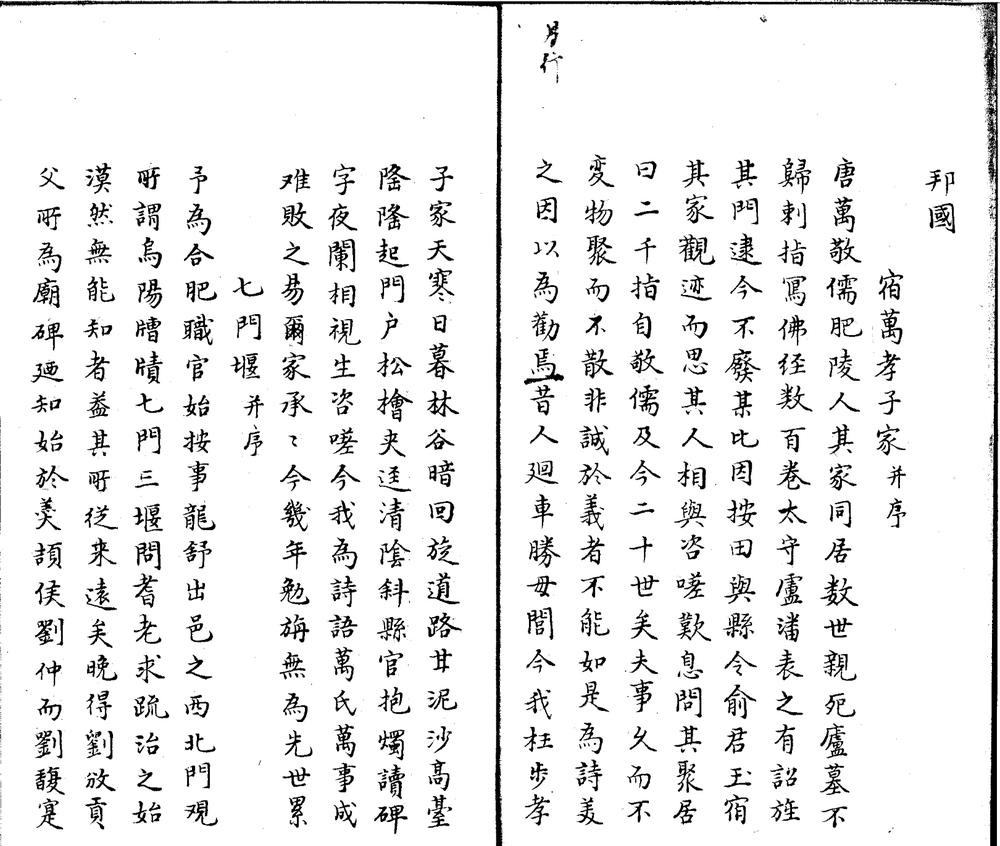 邦國
宿萬孝子家并序
唐萬敬儒肥陵人其家同居数世親死廬墓不
歸刺指寫佛径数百巻太守盧潘表之有詔旌
其門逮今不廢某比因按田與縣令俞君玉宿
其家觀迹而思其人相與咨嗟歎息問其聚居
曰二千指自敬儒及今二十世矣夫事久而不
変物聚而不散非誠於義者不能如是為詩美
之因以為勸焉昔人廻車勝母閭今我枉步孝
子家天寒日暮林谷暗回旋道路廿泥沙髙臺
隆隆起門户松檜夹逕清陰斜縣官抱燭讀碑
字夜闌相視生咨嗟今我為詩語萬氏萬事成
难敗之易爾家承〻今幾年勉旃無為先世累
七門堰并序
予為合肥職官始按事龍舒出邑之西北門观
所謂烏陽𤗱䐉七門三堰問耆老求疏治之始
漠然無能知者葢其所従来遠矣晚得劉攽貢
父所為廟碑廼知始於羮頡侯劉仲而劉馥寔